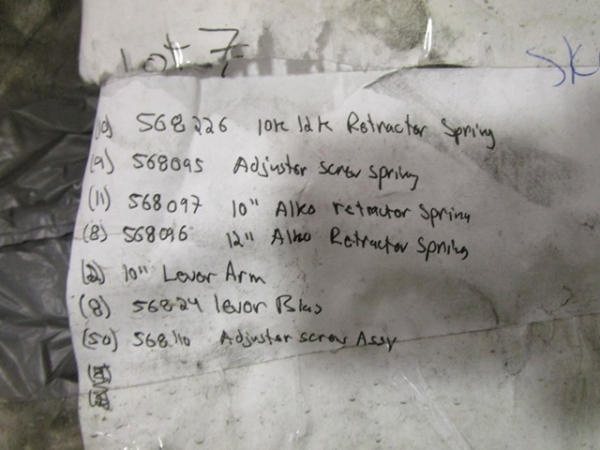 Lot 7
SK
(10) 568226 10k 12k Retractor Spring
(9) 568095 Adjustor screw spring
(11) 568097 10" Alko retractor Spring
(8) 568096 12" Alko Retractor Spring
(2) 10" Lever Arm
(8) 56824 lever
(50) 568110 Adjustor screw Assy